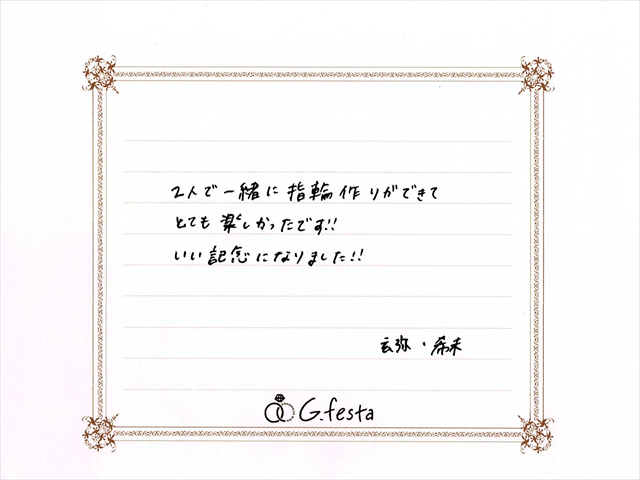 2人で一緒に指輪作りができて
とても楽しかったです!!
いい記念になりました!!
玄弥・希来
G.festa